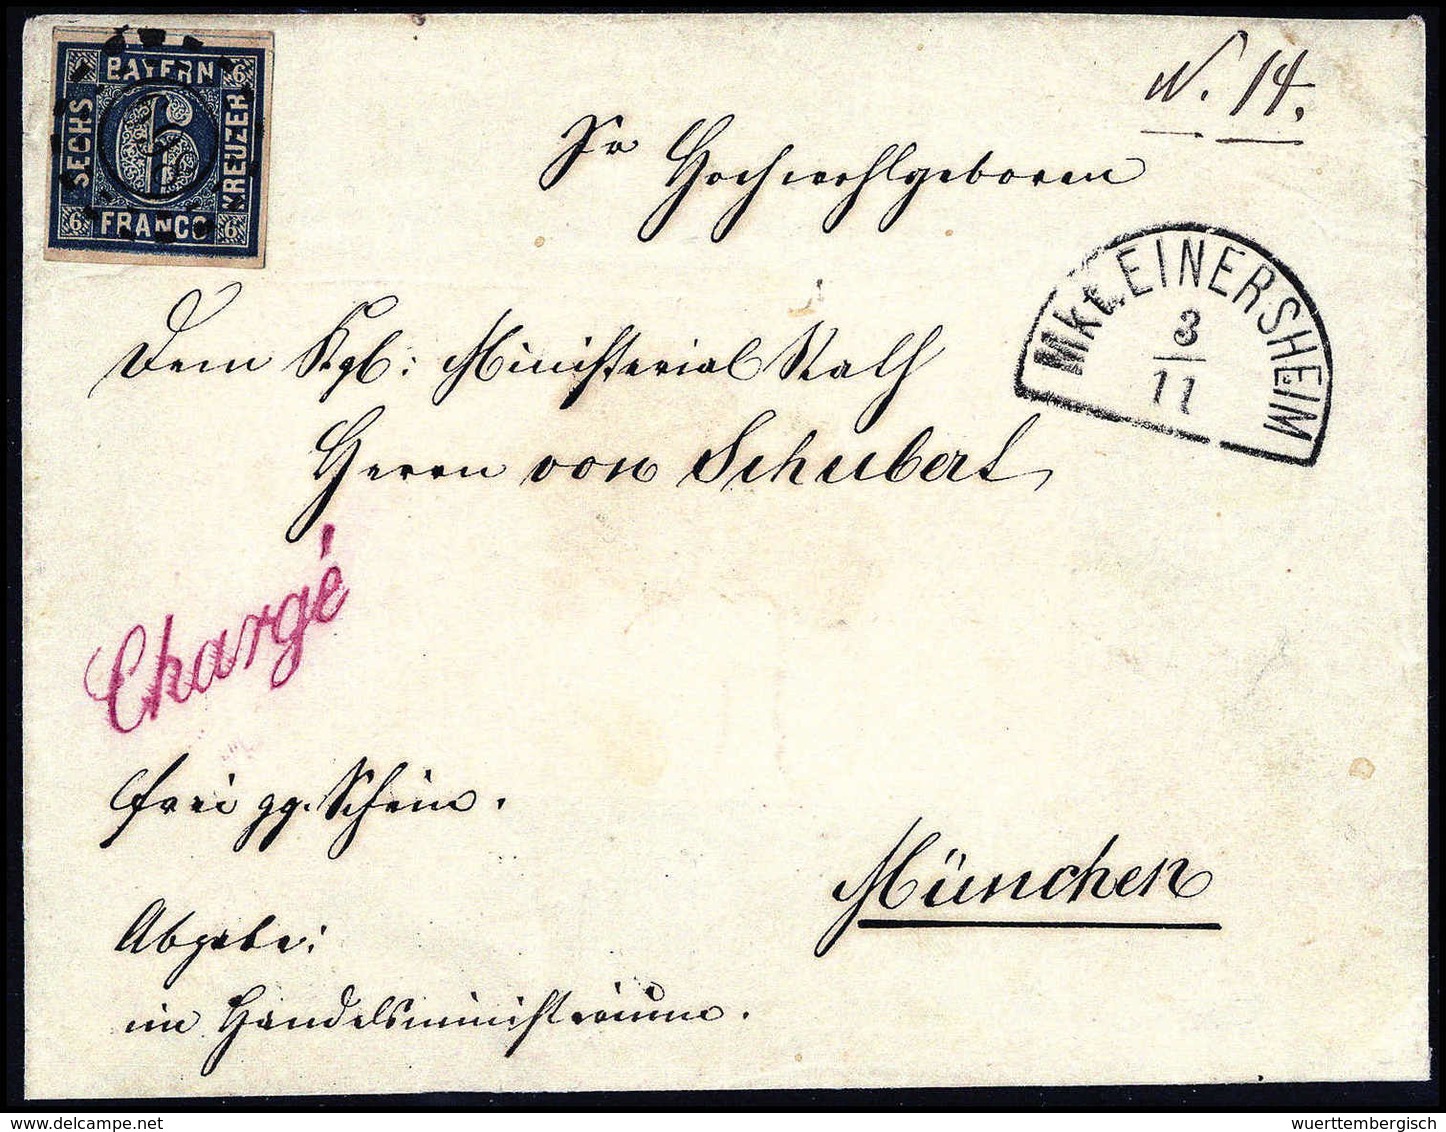 BAYERN
SECHS
KREUZER
FRANCO
6 6 6 6
N. 14.
Sr Hochwohlgeboren
Mkt. EINERSHEIM
3
11
Dem Kgl: Ministerial Rath
Herrn von Schubert
Chargé
frei gg. Schein.
München
Abgabe:
im Handelsministerium.
wuerttembergisch